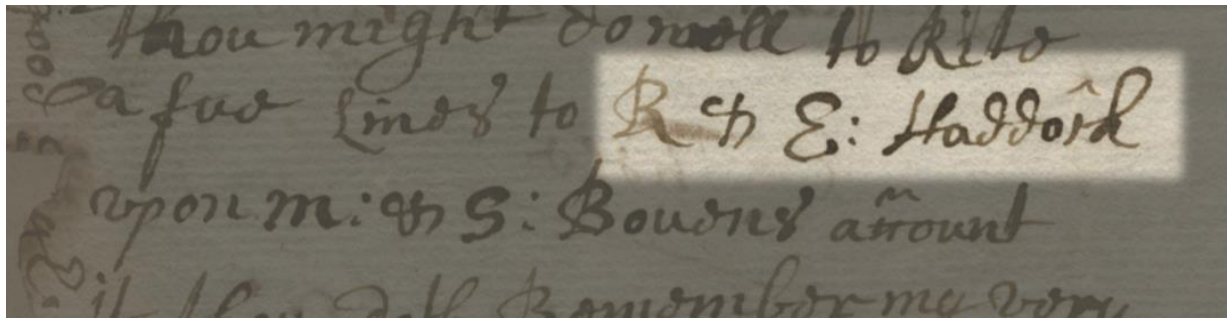 thou might do well to Rite
a fue Lines to R & E: Haddock
upon m: & S: Bouens account
Remember me very